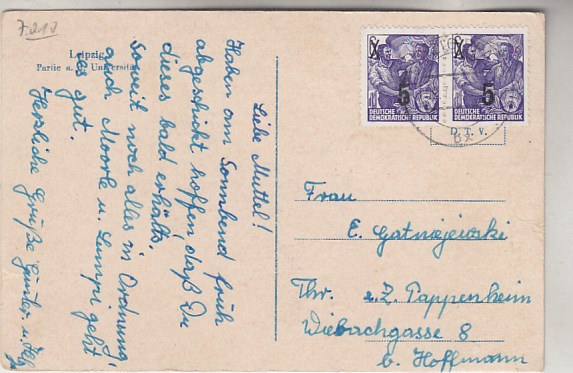 7.210
Leipzig
Partie a. d. Universität
Liebe Muttel!
Haben am Sonnbend früh
abgeschickt hoffen, daß Du
dieses bald erhälts.
Soweit noch alles in Ordnung,
auch Moorle u. Lumpi geht
es gut.
Herzliche Grüße Günter u.
5
5
DEUTSCHE
DEMOKRATISCHE REPUBLIK
DEUTSCHE
DEMOKRATISCHE REPUBLIK
D. T. V.
Frau
E. Gatnejewski
Thr. z.Z. Pappenheim
Wiebachgasse 8
b. Hoffmann